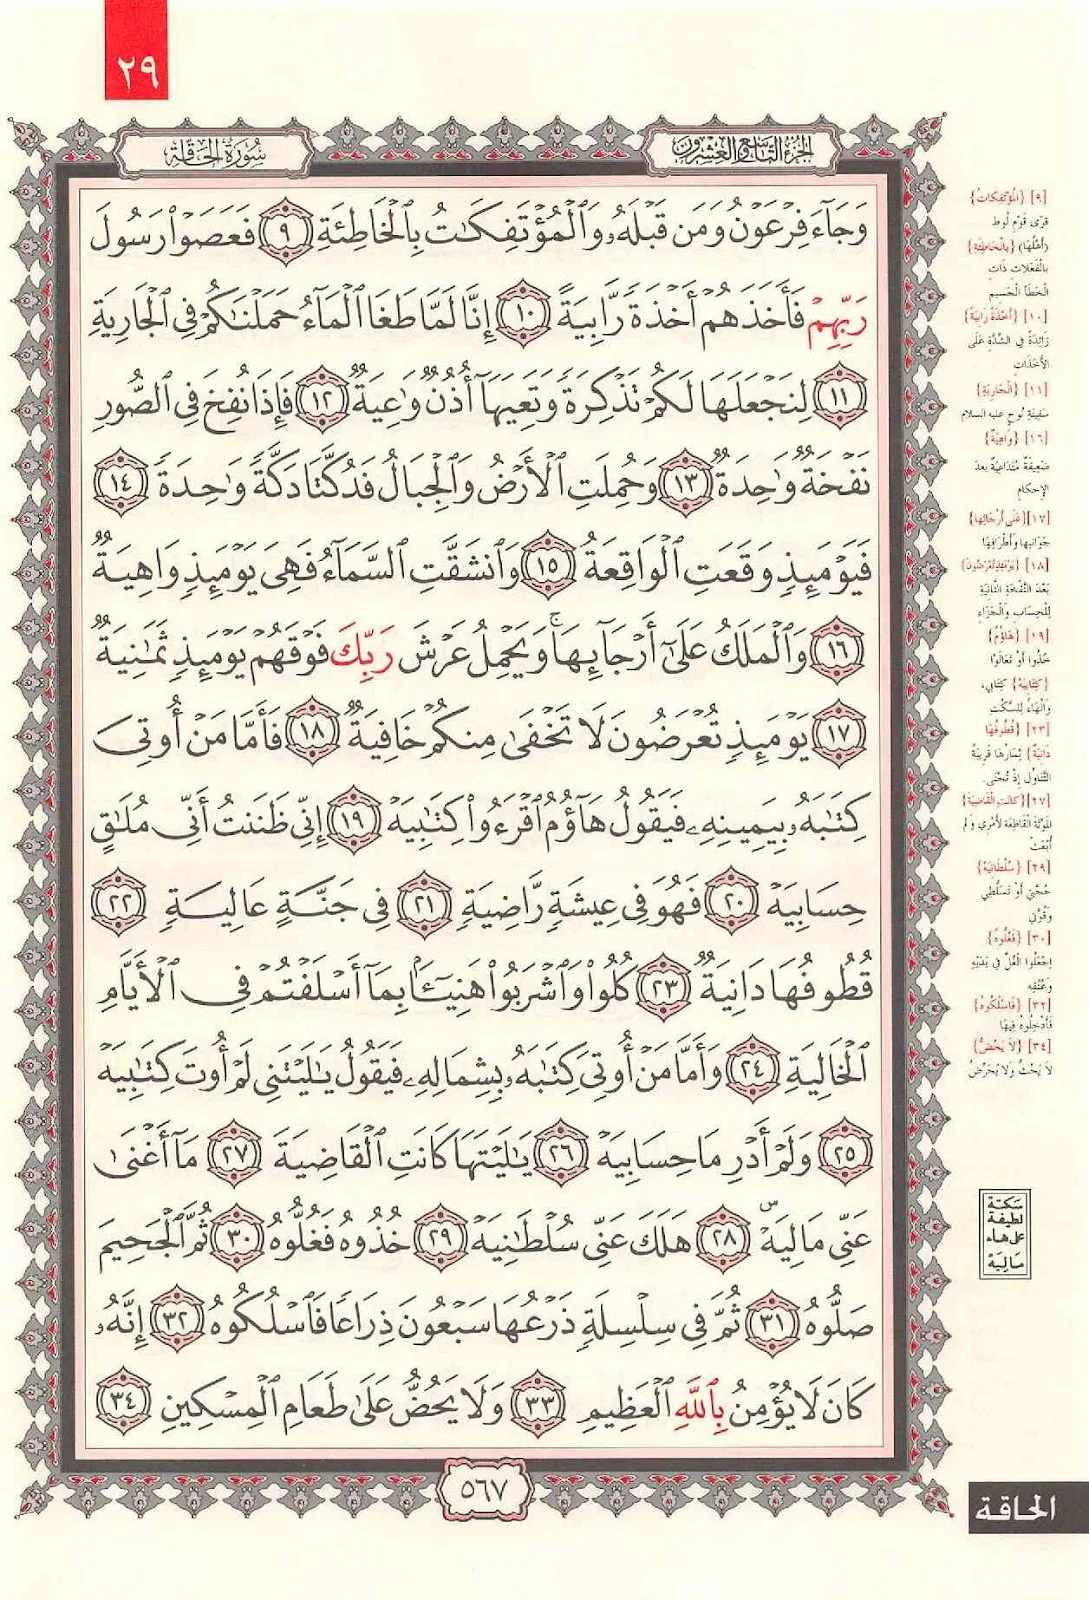 ٢٩
الجزء التاسع والعشرون
سورة الحاقة
وَجَآءَ فِرْعَوْنُ وَمَن قَبْلَهُۥ وَٱلْمُؤْتَفِكَٰتُ بِٱلْخَاطِئَةِ ٩ فَعَصَوْا۟ رَسُولَ
رَبِّهِمْ فَأَخَذَهُمْ أَخْذَةً رَّابِيَةً ١٠ إِنَّا لَمَّا طَغَا ٱلْمَآءُ حَمَلْنَٰكُمْ فِى ٱلْجَارِيَةِ
١١ لِنَجْعَلَهَا لَكُمْ تَذْكِرَةً وَتَعِيَهَآ أُذُنٌ وَٰعِيَةٌ ١٢ فَإِذَا نُفِخَ فِى ٱلصُّورِ
نَفْخَةٌ وَٰحِدَةٌ ١٣ وَحُمِلَتِ ٱلْأَرْضُ وَٱلْجِبَالُ فَدُكَّتَا دَكَّةً وَٰحِدَةً ١٤
فَيَوْمَئِذٍ وَقَعَتِ ٱلْوَاقِعَةُ ١٥ وَٱنشَقَّتِ ٱلسَّمَآءُ فَهِىَ يَوْمَئِذٍ وَاهِيَةٌ
١٦ وَٱلْمَلَكُ عَلَىٰٓ أَرْجَآئِهَا ۚ وَيَحْمِلُ عَرْشَ رَبِّكَ فَوْقَهُمْ يَوْمَئِذٍ ثَمَٰنِيَةٌ
١٧ يَوْمَئِذٍ تُعْرَضُونَ لَا تَخْفَىٰ مِنكُمْ خَافِيَةٌ ١٨ فَأَمَّا مَنْ أُوتِىَ
كِتَٰبَهُۥ بِيَمِينِهِۦ فَيَقُولُ هَآؤُمُ ٱقْرَءُوا۟ كِتَٰبِيَهْ ١٩ إِنِّى ظَنَنتُ أَنِّى مُلَٰقٍ
حِسَابِيَهْ ٢٠ فَهُوَ فِى عِيشَةٍ رَّاضِيَةٍ ٢١ فِى جَنَّةٍ عَالِيَةٍ ٢٢
قُطُوفُهَا دَانِيَةٌ ٢٣ كُلُوا۟ وَٱشْرَبُوا۟ هَنِيٓـًٔۢا بِمَآ أَسْلَفْتُمْ فِى ٱلْأَيَّامِ
ٱلْخَالِيَةِ ٢٤ وَأَمَّا مَنْ أُوتِىَ كِتَٰبَهُۥ بِشِمَالِهِۦ فَيَقُولُ يَٰلَيْتَنِى لَمْ أُوتَ كِتَٰبِيَهْ
٢٥ وَلَمْ أَدْرِ مَا حِسَابِيَهْ ٢٦ يَٰلَيْتَهَا كَانَتِ ٱلْقَاضِيَةَ ٢٧ مَآ أَغْنَىٰ
عَنِّى مَالِيَهْ ۜ ٢٨ هَلَكَ عَنِّى سُلْطَٰنِيَهْ ٢٩ خُذُوهُ فَغُلُّوهُ ٣٠ ثُمَّ ٱلْجَحِيمَ
صَلُّوهُ ٣١ ثُمَّ فِى سِلْسِلَةٍ ذَرْعُهَا سَبْعُونَ ذِرَاعًا فَٱسْلُكُوهُ ٣٢ إِنَّهُۥ
كَانَ لَا يُؤْمِنُ بِٱللَّهِ ٱلْعَظِيمِ ٣٣ وَلَا يَحُضُّ عَلَىٰ طَعَامِ ٱلْمِسْكِينِ ٣٤
٥٦٧
[٩] {المُؤْتَفِكَاتُ}
قُرَى قَوْمِ لُوطٍ
(أَهْلُهَا) {بِالْخَاطِئَةِ}
بِالْفَعَلَاتِ ذَاتِ
الْخَطَأِ الْجَسِيمِ
[١٠] {أَخْذَةً رَابِيَةً}
زَائِدَةً فِي الشِّدَّةِ عَلَى
الأَخَذَاتِ
[١١] {الْجَارِيَةِ}
سَفِينَةِ نُوحٍ عليه السلام
[١٦] {وَاهِيَةٌ}
ضَعِيفَةٌ مُتَدَاعِيَةٌ بعدَ
الإحكام
[١٧] {عَلَى أَرْجَائِهَا}
جَوَانِبِهَا وَأَطْرَافِهَا
[١٨] {يَوْمَئِذٍ تُعْرَضُونَ}
بَعْدَ النَّفْخَةِ الثَّانِيَةِ
لِلْحِسَابِ وَالْجَزَاءِ
[١٩] {هَاؤُمُ}
خُذُوا أَوْ تَعَالَوْا
{كِتَابِيَهْ} كِتَابِي،
وَالْهَاءُ لِلسَّكْتِ
[٢٣] {قُطُوفُهَا
دَانِيَةٌ} ثِمَارُهَا قَرِيبَةُ
التَّنَاوُلِ
[٢٧] {كَانَتِ الْقَاضِيَةَ}
المَوْتَةَ الْقَاطِعَةَ لأَمْرِي وَلَمْ
أُبْعَثْ
[٢٩] {سُلْطَانِيَهْ}
حُجَّتِي أَوْ تَسَلُّطِي
وَقُوَّتِي
[٣٠] {فَغُلُّوهُ}
اجْعَلُوا الْغُلَّ فِي يَدَيْهِ
وَعُنُقِهِ
[٣٢] {فَاسْلُكُوهُ}
فَأَدْخِلُوهُ فِيهَا
[٣٤] {لاَ يَحُضُّ}
لاَ يَحُثُّ وَلاَ يُحَرِّضُ
سكتة
لطيفة
على هاء
مَالِيَهْ
الحاقة